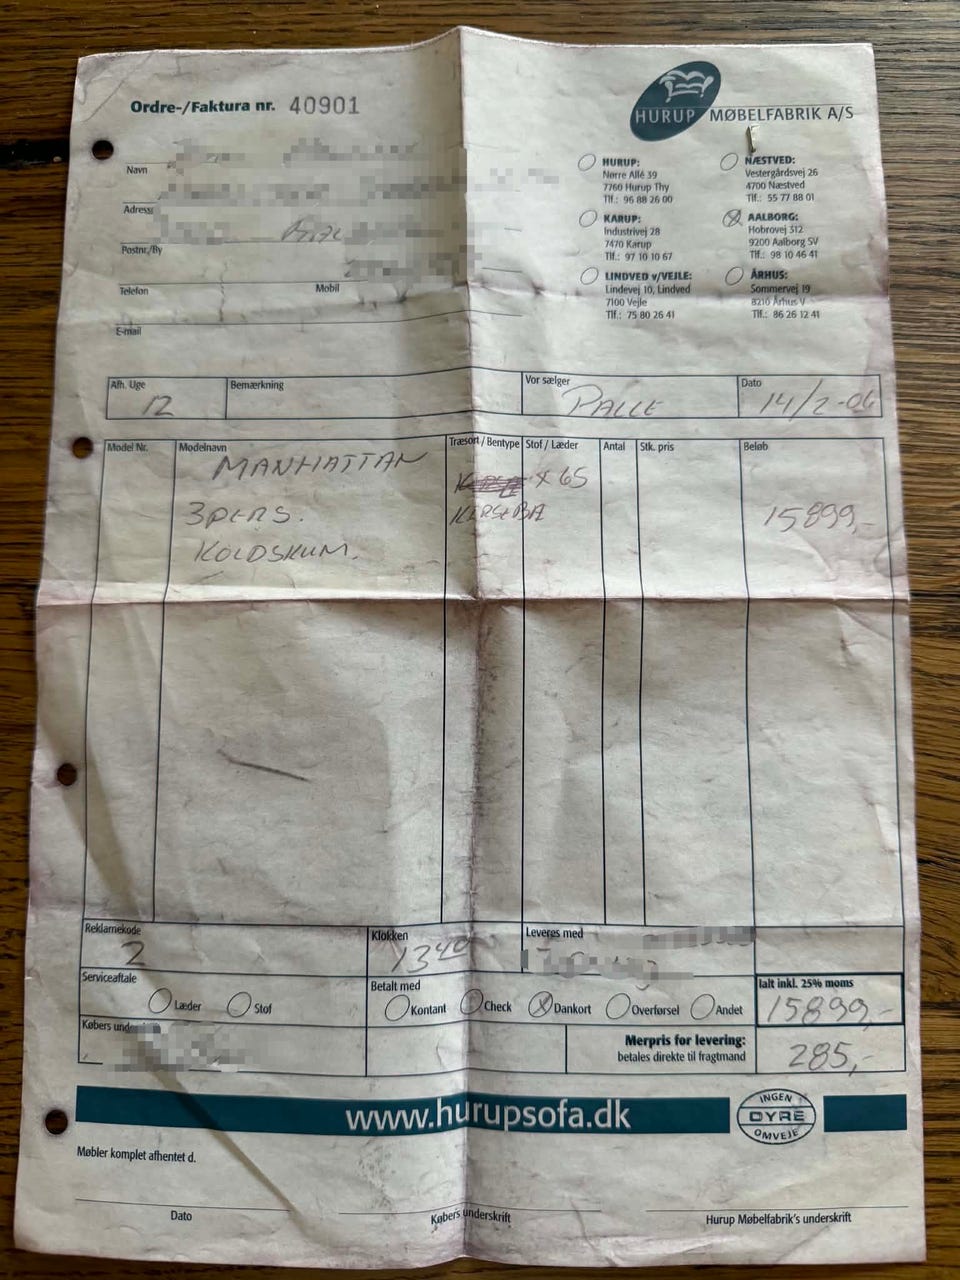 Ordre-/Faktura nr. 40901
HURUP MØBELFABRIK A/S
Navn
Adresse
Postnr./By
Telefon Mobil
E-mail
HURUP:
Nørre Allé 39
7760 Hurup Thy
Tlf.: 96 88 26 00
KARUP:
Industrivej 28
7470 Karup
Tlf.: 97 10 10 67
LINDVED v/VEJLE:
Lindevej 10, Lindved
7100 Vejle
Tlf.: 75 80 26 41
NÆSTVED:
Vestergårdsvej 26
4700 Næstved
Tlf.: 55 77 88 01
AALBORG:
Hobrovej 312
9200 Aalborg SV
Tlf.: 98 10 46 41
ÅRHUS:
Sommervej 19
8210 Århus V
Tlf.: 86 26 12 41
Afh. Uge Bemærkning Vor sælger Dato
12 PALLE 14/2-06
Model Nr. Modelnavn Træsort / Bentype Stof / Læder Antal Stk. pris Beløb
MANHATTAN
X 65
3PERS. KIRSEBÆ 15899,-
KOLDSKUM.
Reklamekode Klokken Leveres med
2 1340
Serviceaftale Betalt med Ialt inkl. 25% moms
Læder Stof Kontant Check Dankort Overførsel Andet 15899,-
Købers und
Merpris for levering: 285,-
betales direkte til fragtmand
www.hurupsofa.dk
INGEN
DYRE
OMVEJE
Møbler komplet afhentet d.
Dato Købers underskrift Hurup Møbelfabrik's underskrift